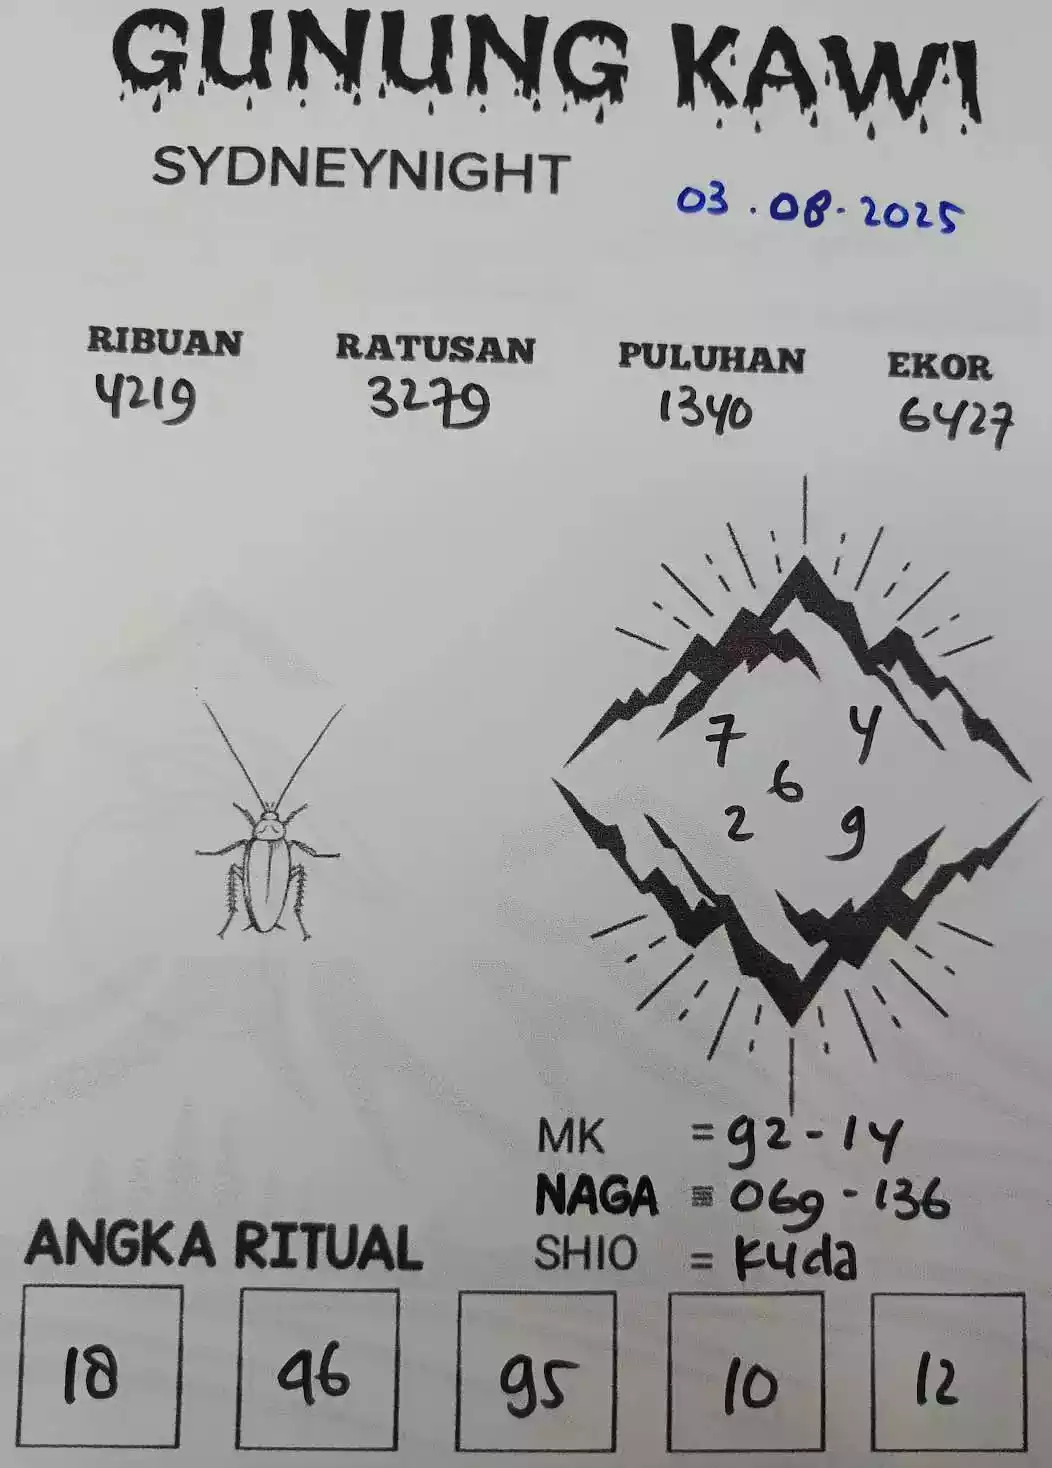 GUNUNG KAWI
SYDNEYNIGHT
03.08.2025
RIBUAN RATUSAN PULUHAN EKOR
4219 3279 1340 6427
7 4
6
2 9
MK = 92-14
NAGA = 069-136
SHIO = Kuda
ANGKA RITUAL
18 46 95 10 12